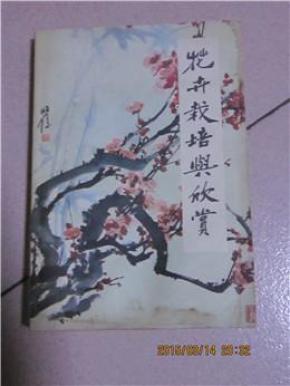 花卉栽培與欣赏
2015/03/14 20:32